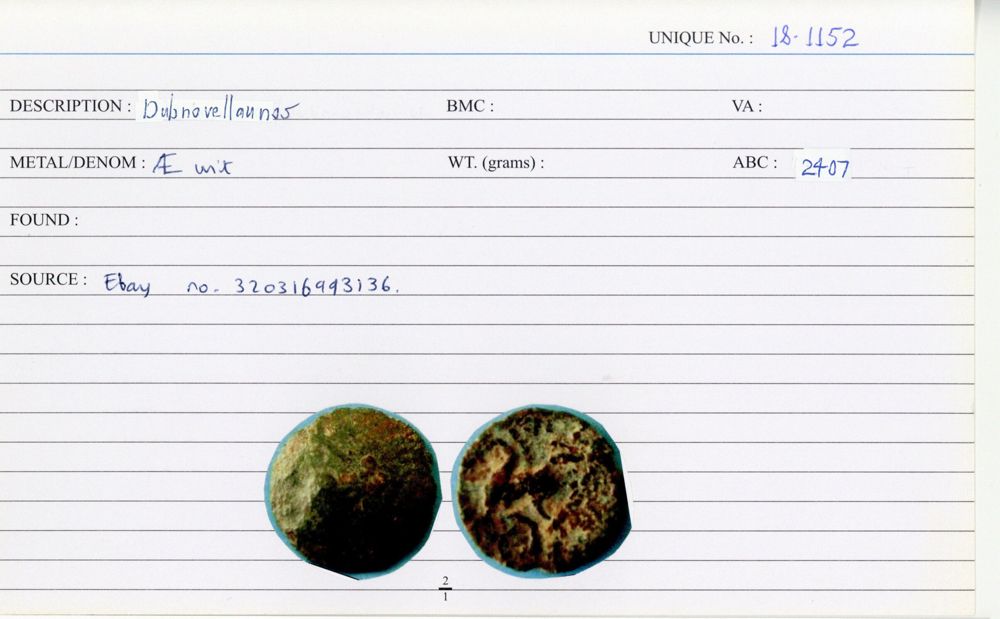 UNIQUE No. : 18.1152
DESCRIPTION : Dubnovellaunos BMC : VA :
METAL/DENOM : Æ unit WT. (grams) : ABC : 2407
FOUND :
SOURCE : Ebay no. 320316993136.
2
1